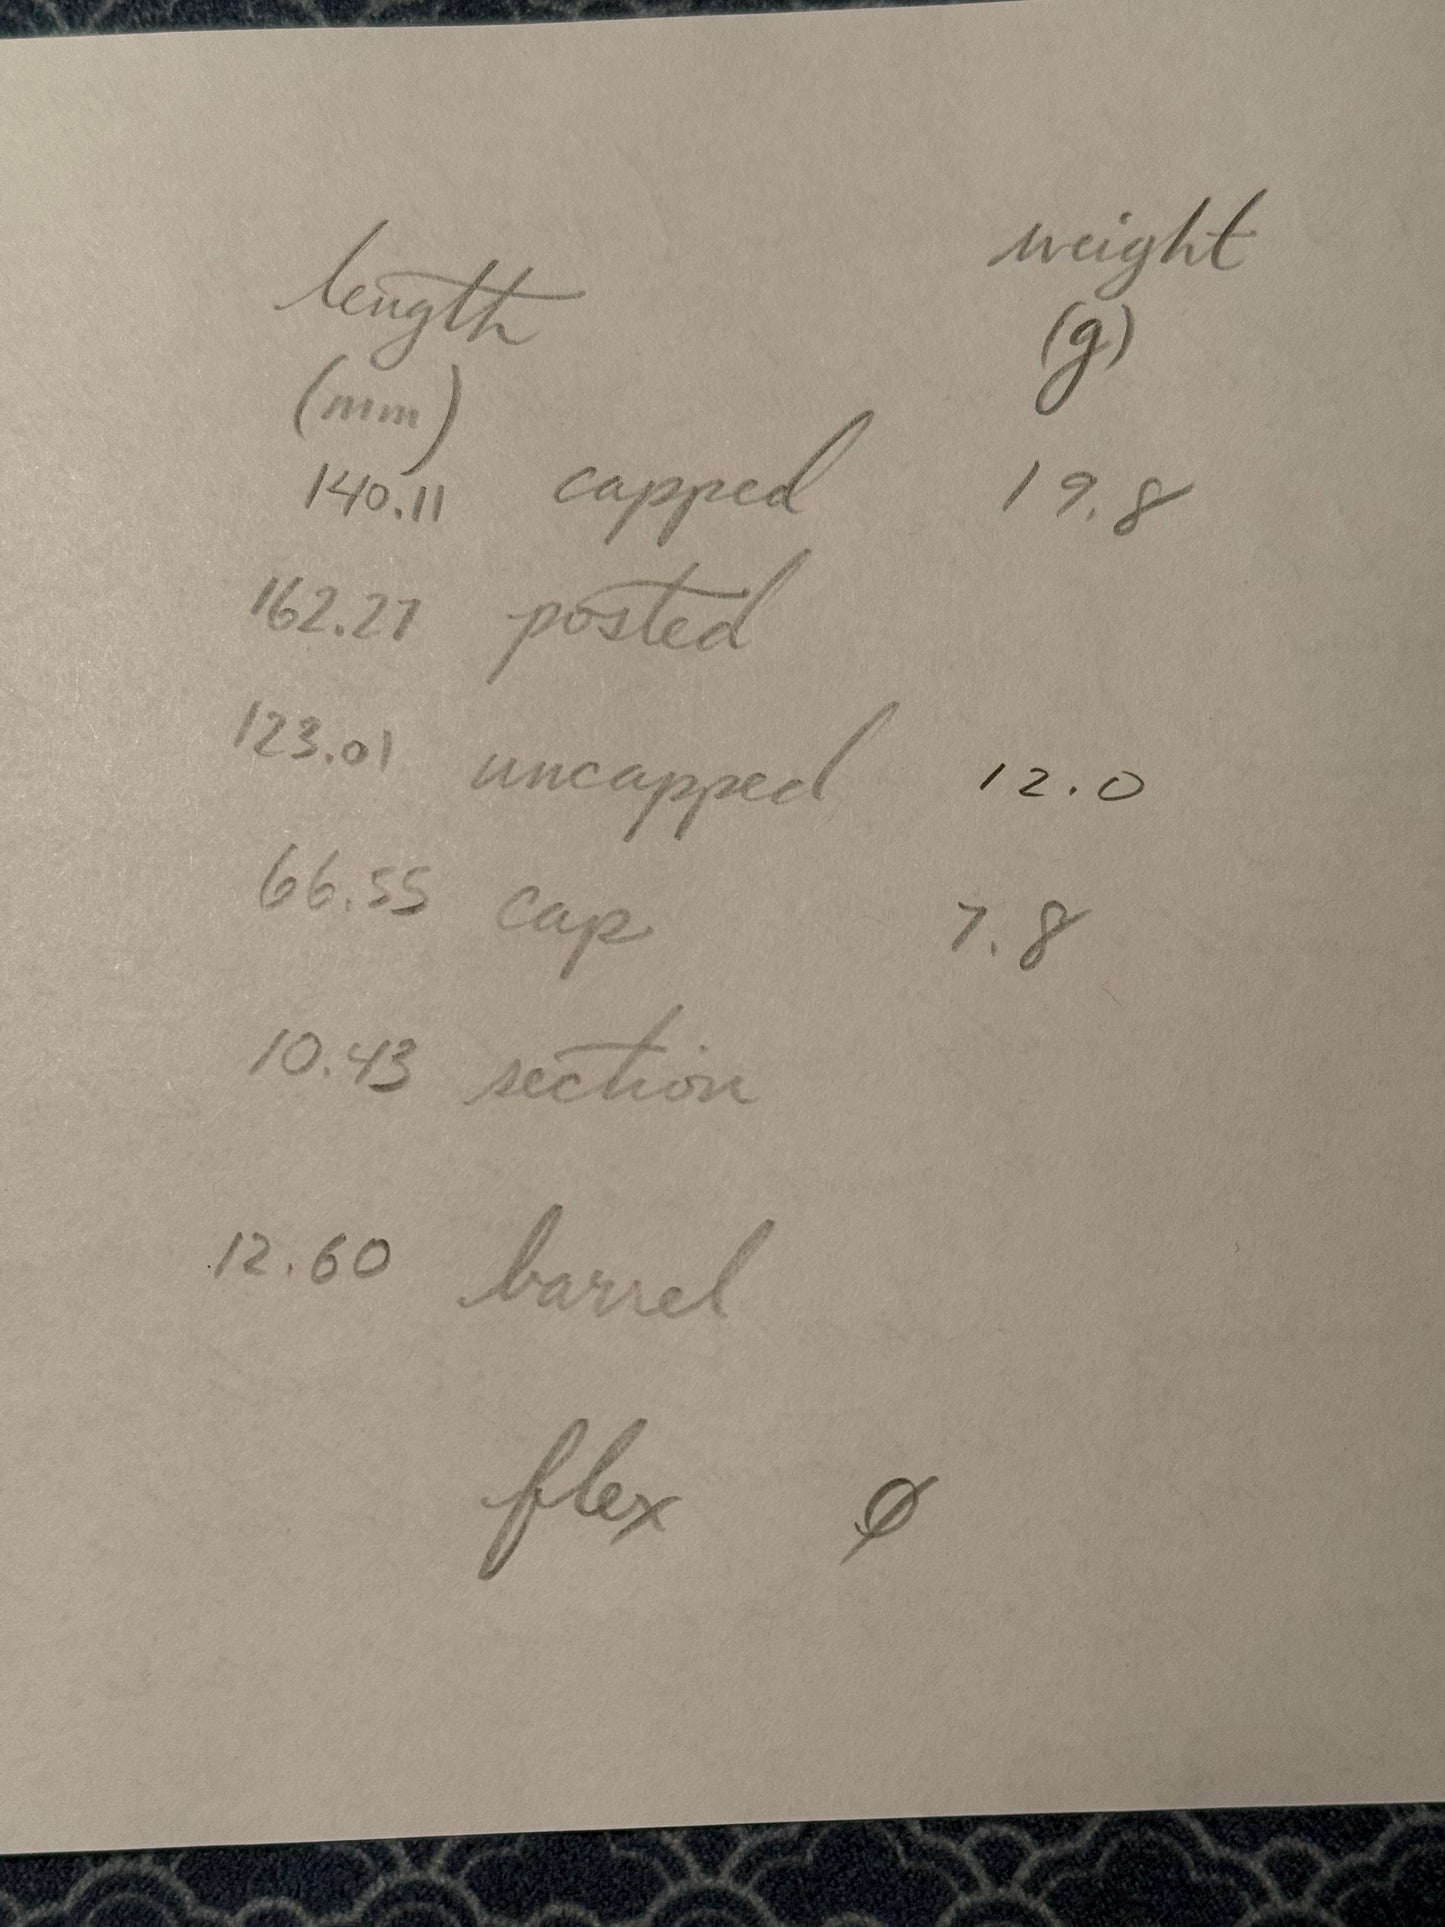 length weight
(mm) (g)
140.11 capped 19.8
162.27 posted
123.01 uncapped 12.0
66.55 cap 7.8
10.43 section
12.60 barrel
flex ∅